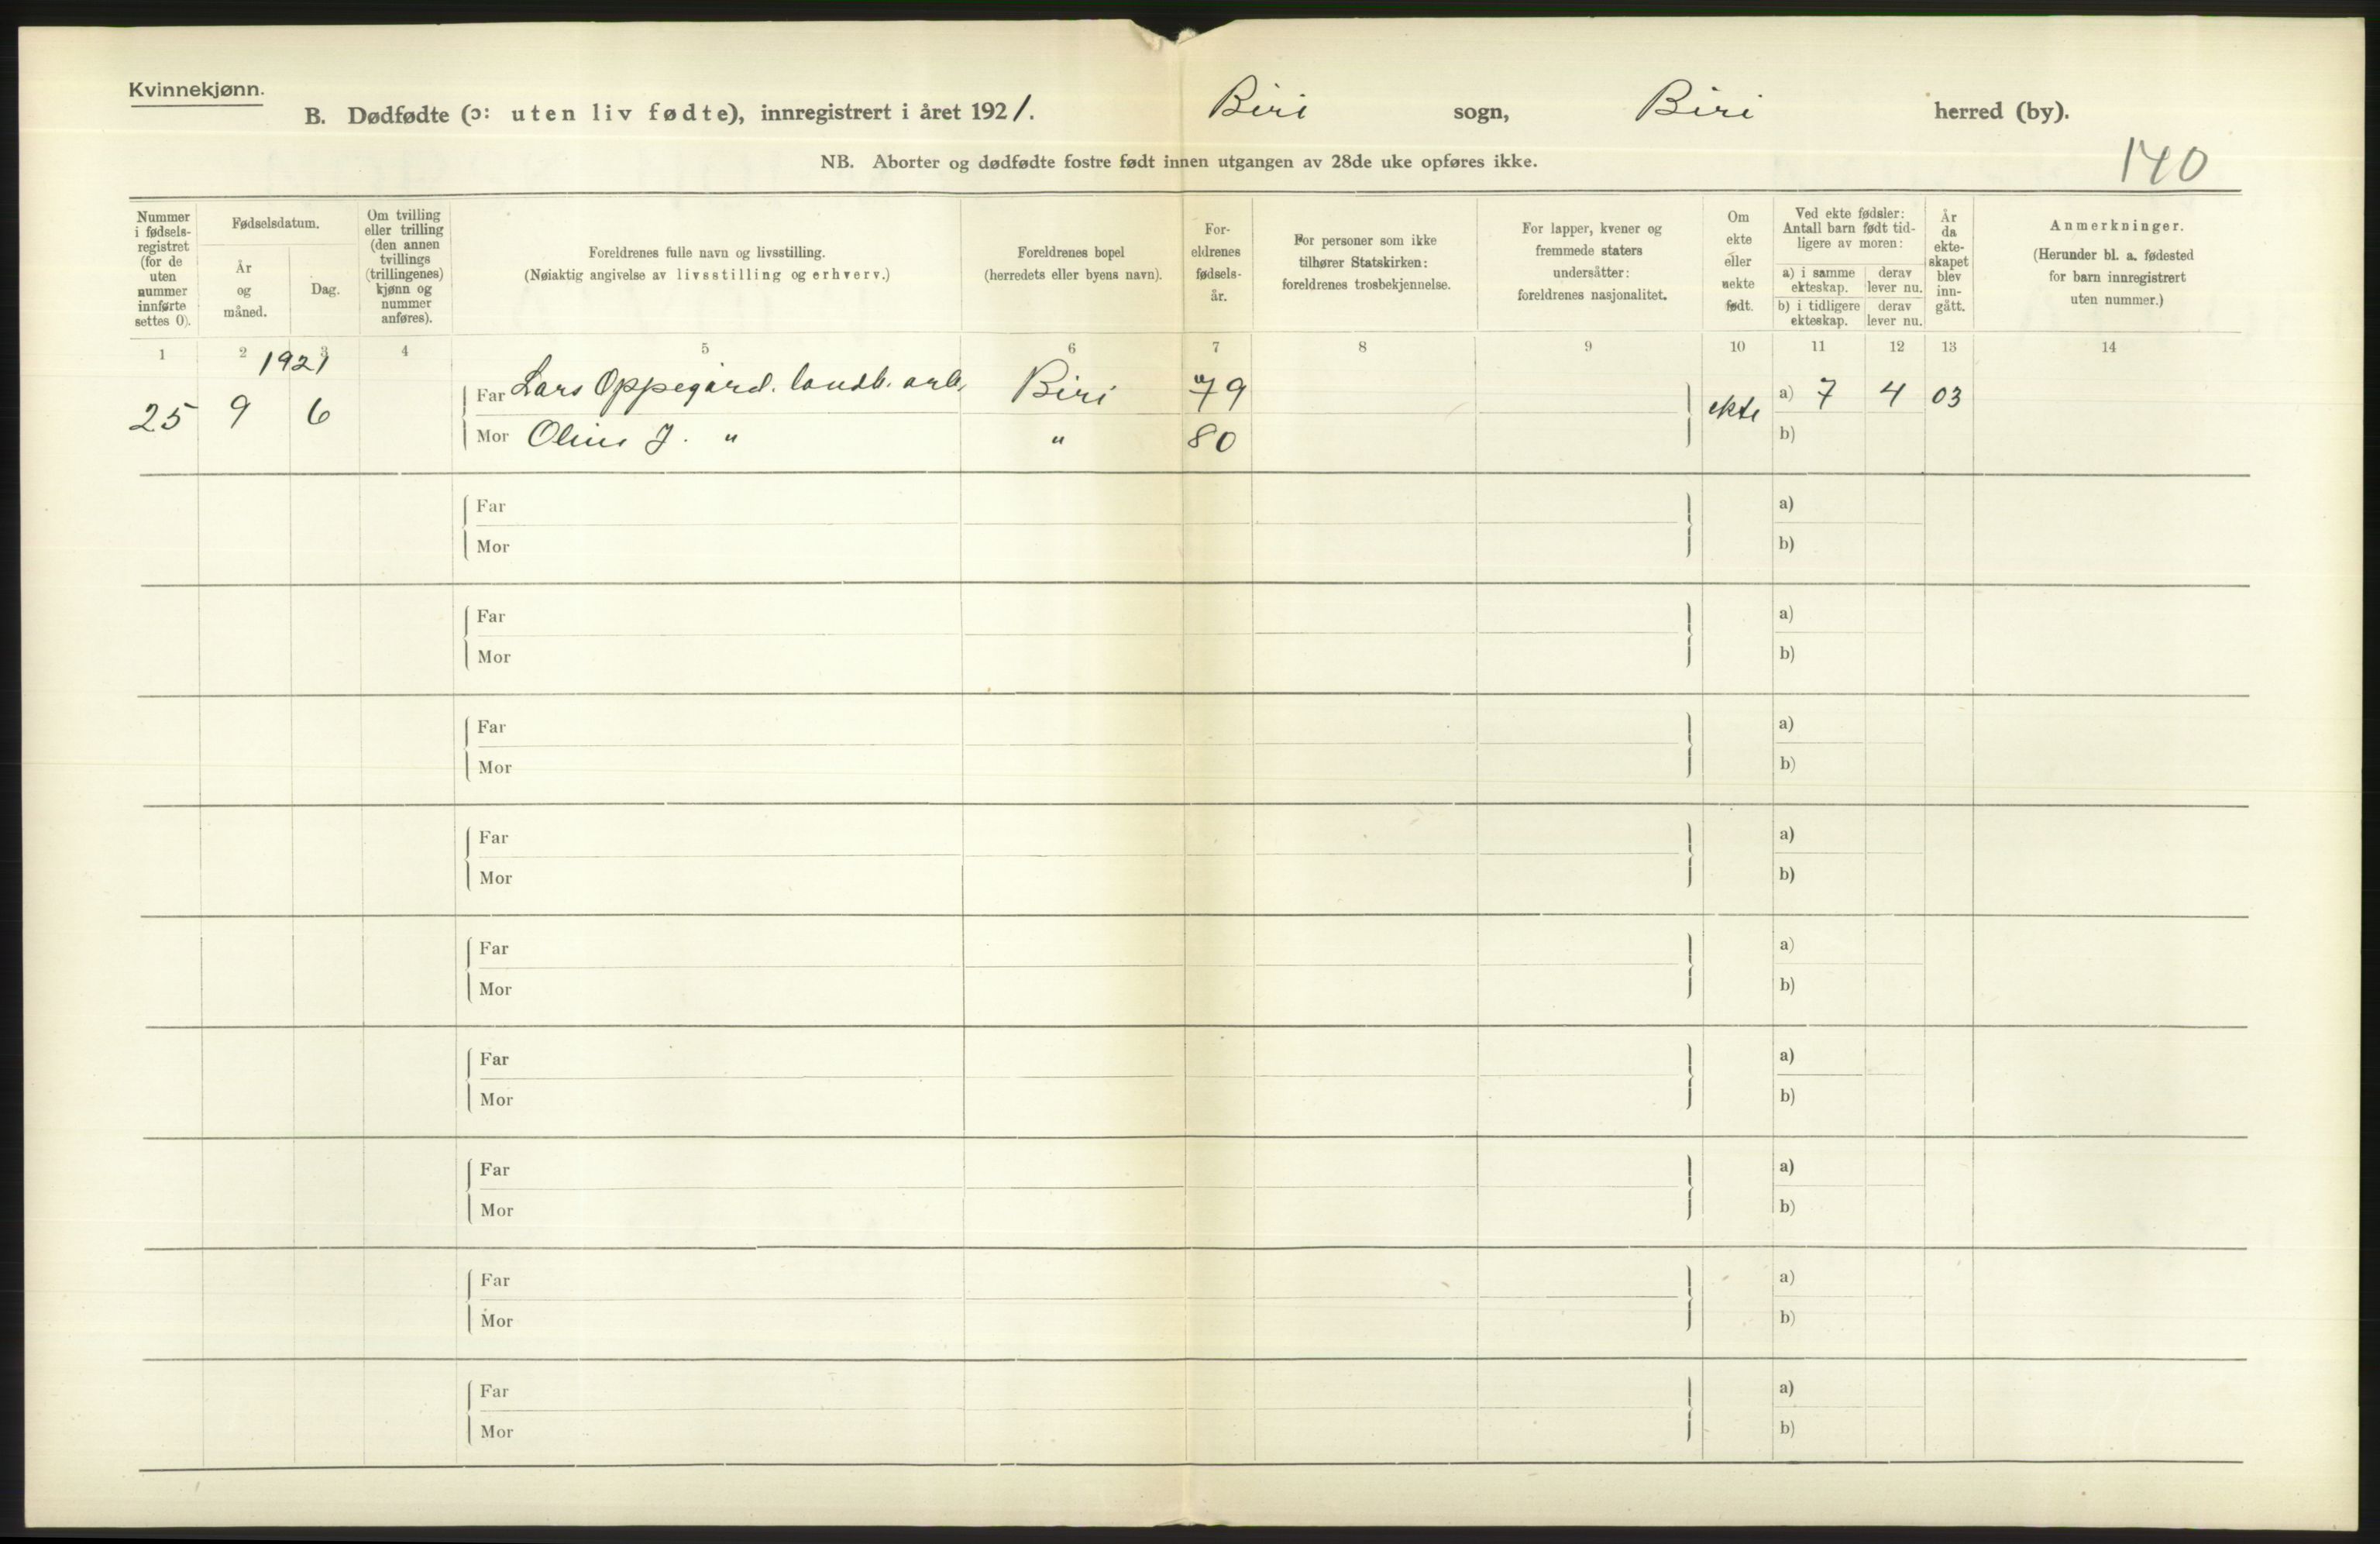 Kvinnekjønn.
B. Dødfødte (ɔ: uten liv fødte), innregistrert i året 1921. Biri sogn, Biri herred (by).
140
NB. Aborter og dødfødte fostre født innen utgangen av 28de uke opføres ikke.
Nummer
i fødsels-
registret
(for de
uten
nummer
innførte
settes 0).
Fødselsdatum.
År
og
måned.
Dag.
Om tvilling
eller trilling
(den annen
tvillings
(trillingenes)
kjønn og
nummer
anføres).
Foreldrenes fulle navn og livsstilling.
(Nøiaktig angivelse av livsstilling og erhverv.)
Foreldrenes bopel
(herredets eller byens navn).
For-
eldrenes
fødsels-
år.
For personer som ikke
tilhører Statskirken:
foreldrenes trosbekjennelse.
For lapper, kvener og
fremmede staters
undersåtter:
foreldrenes nasjonalitet.
Om
ekte
eller
uekte
født.
Ved ekte fødsler:
Antall barn født tid-
ligere av moren:
a) i samme
ekteskap.
derav
lever nu.
b) i tidligere
ekteskap.
derav
lever nu.
År
da
ekte-
skapet
blev
inn-
gått.
Anmerkninger.
(Herunder bl. a. fødested
for barn innregistrert
uten nummer.)
1 2 3 4 5 6 7 8 9 10 11 12 13 14
1921
25 9 6 Far Lars Oppegård. landb. arb. Biri 79 ekte a) 7 4 03
Mor J. " " 80 b)
Far a)
Mor b)
Far a)
Mor b)
Far a)
Mor b)
Far a)
Mor b)
Far a)
Mor b)
Far a)
Mor b)
Far a)
Mor b)
Far a)
Mor b)
Far a)
Mor b)